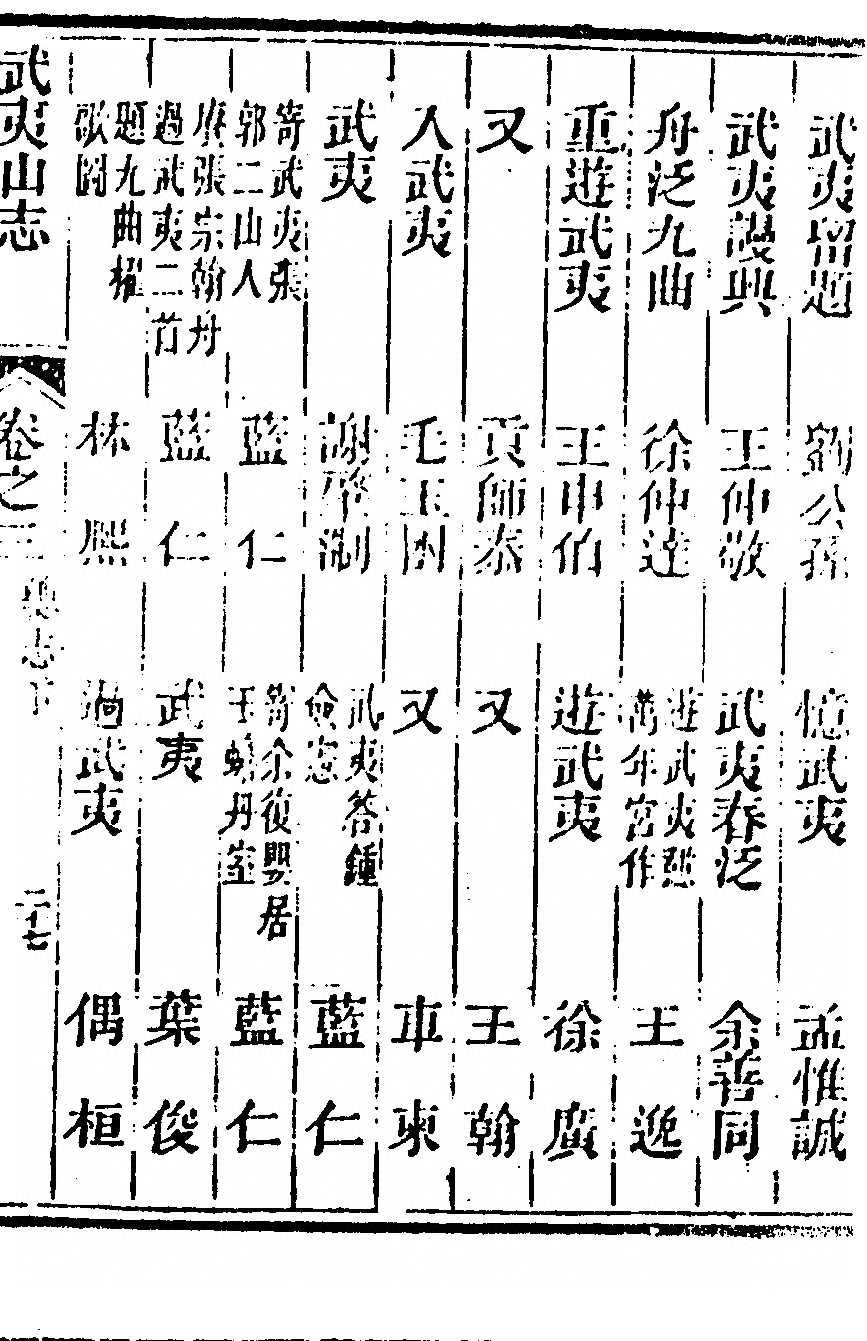 武夷留題 劉公孫 憶武夷 孟惟誠
武夷謾興 王仲敬 武夷春泛 余善同
舟泛九曲 徐仲達 遊武夷憩萬年宮作 王逸
重遊武夷 王申伯 遊武夷 徐廣
又 貢師泰 又 王翰
入武夷 毛玉囦 又 車柬
武夷 謝肇淛 武夷答鍾僉憲 藍仁
寄武夷張郭二山人 藍仁 寄余復嬰居玉蟾丹室 藍仁
賡張宗翰舟過武夷二首 藍仁 武夷 葉俊
題九曲櫂歌圖 林熙 過武夷 偶桓
武夷山志 卷之三 志下 二十七